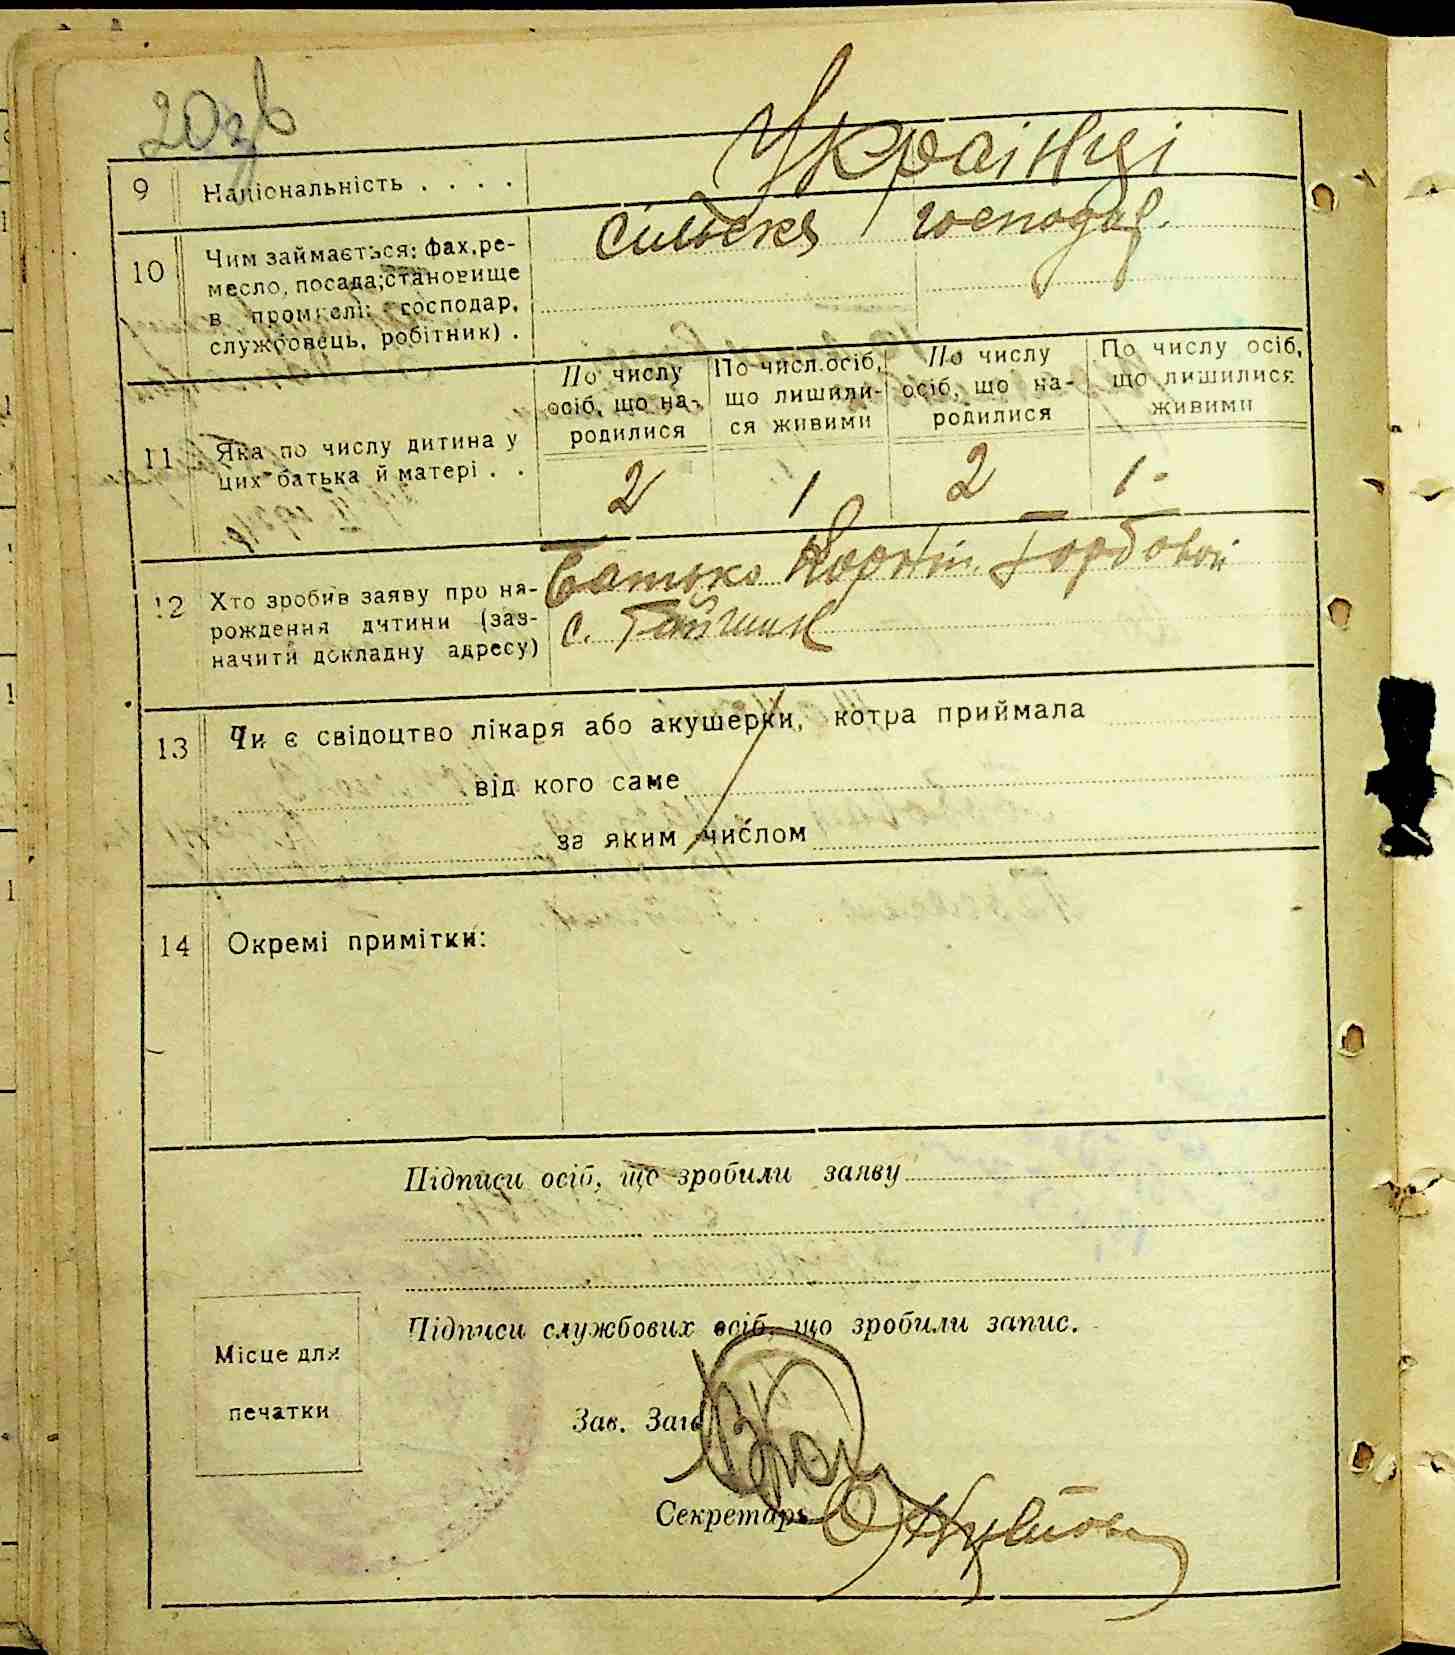 20зв
9 Національність . . . .
Українці
10 Чим займається: фах, ре-
месло, посада; становище
в промислі: господар,
службовець, робітник) .
сільске господар.
11 Яка по числу дитина у
цих батька й матері . .
По числу
осіб, що на-
родилися
По числ. осіб,
що лишили-
ся живими
По числу
осіб, що на-
родилися
По числу осіб,
що лишилися
живими
2 1 2 1-
12 Хто зробив заяву про на-
рождення дитини (заз-
начити докладну адресу)
Батько Корній Горбовой
с. Гайчин
13 Чи є свідоцтво лікаря або акушерки, котра приймала
від кого саме
за яким числом
14 Окремі примітки:
Підписи осіб, що зробили заяву
Підписи службових осіб, що зробили запис.
Місце для
печатки
Зав. Заг
Секретарь